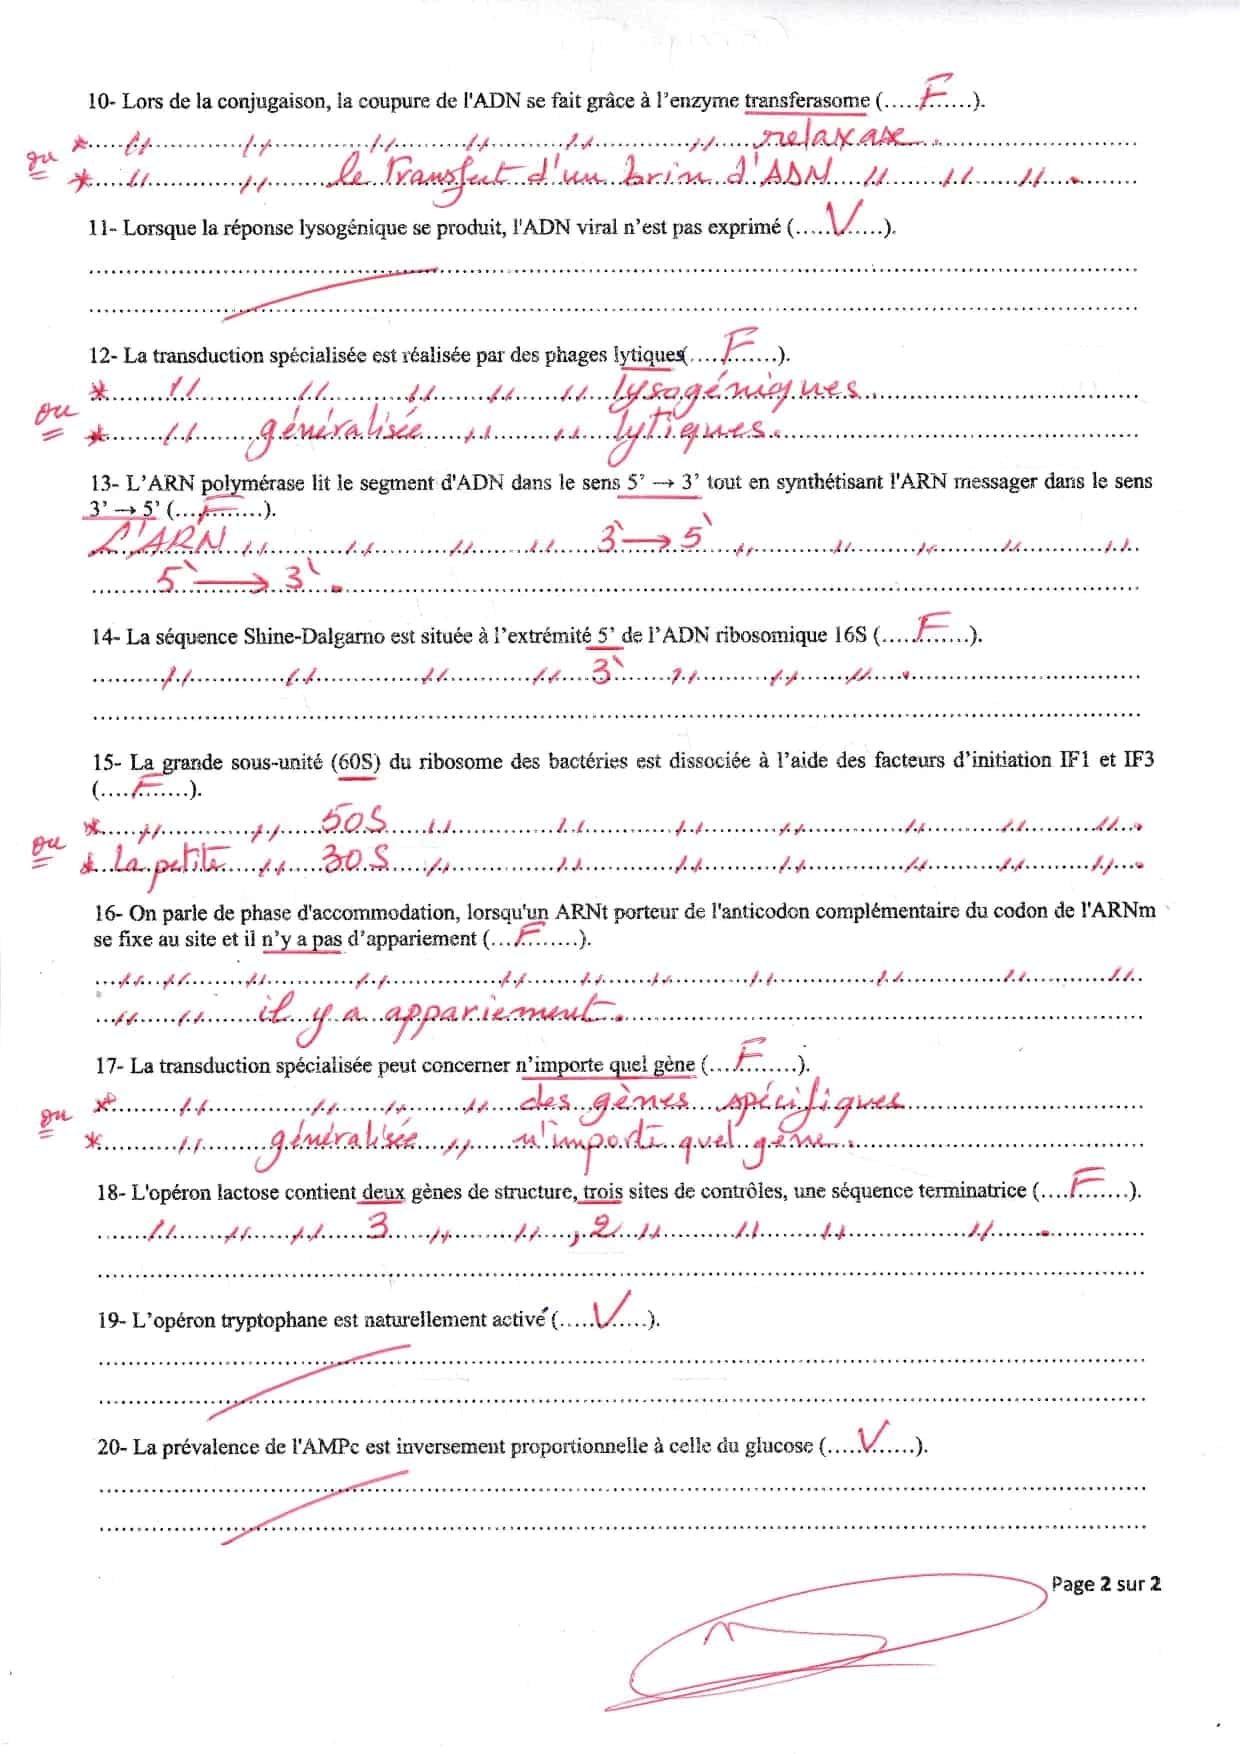 10- Lors de la conjugaison, la coupure de l'ADN se fait grâce à l'enzyme transferasome (.....F......).
ou *..... // // // // // // relaxase.
= * // // le transfert d'un brin d'ADN // // // .
11- Lorsque la réponse lysogénique se produit, l'ADN viral n'est pas exprimé (.....V.....).
12- La transduction spécialisée est réalisée par des phages lytiques(.....F.......).
* // // // // // lysogéniques.
ou = * // généralisée // // lytiques.
13- L'ARN polymérase lit le segment d'ADN dans le sens 5' → 3' tout en synthétisant l'ARN messager dans le sens
3' → 5' (....F........).
L'ARN // // // // 3' → 5' // // // // //
5' → 3' .
14- La séquence Shine-Dalgarno est située à l'extrémité 5' de l'ADN ribosomique 16S (.....F.......).
// // // // 3' // // // .
15- La grande sous-unité (60S) du ribosome des bactéries est dissociée à l'aide des facteurs d'initiation IF1 et IF3
(....F.......).
* // // 50S // // // // // // .
ou = * La petite // 30S // // // // // // .
16- On parle de phase d'accommodation, lorsqu'un ARNt porteur de l'anticodon complémentaire du codon de l'ARNm
se fixe au site et il n'y a pas d'appariement (...F........).
// // // // // // // // // // //
// // il y a appariement.
17- La transduction spécialisée peut concerner n'importe quel gène (....F........).
ou = * // // // // des gènes spécifiques
* // généralisée // n'importe quel gène.
18- L'opéron lactose contient deux gènes de structure, trois sites de contrôles, une séquence terminatrice (....F.......).
// // // 3 // // , 2 // // // // .
19- L'opéron tryptophane est naturellement activé (.....V.....).
20- La prévalence de l'AMPc est inversement proportionnelle à celle du glucose (....V......).
Page 2 sur 2